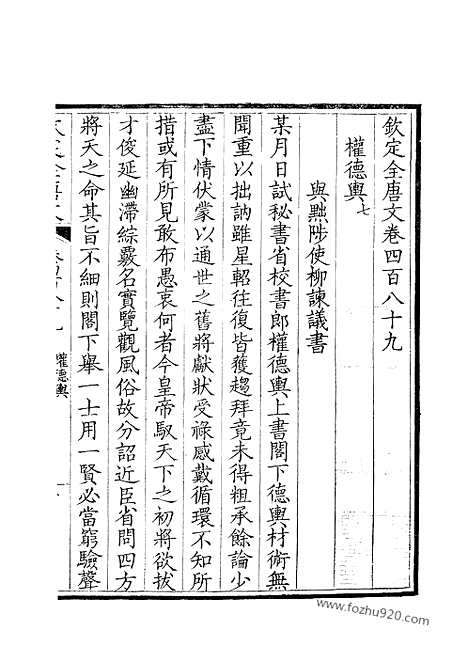 欽定全唐文卷四百八十九
權德輿七
與黜陟使柳諫議書
某月日試秘書省校書郎權德輿上書閣下德輿材術無
聞重以拙訥雖星軺往復皆獲趨拜竟未得粗承餘論少
盡下情伏蒙以通世之舊將獻狀受祿感戴循環不知所
措或有所見敢布愚衷何者今皇帝馭天下之初將欲拔
才俊延幽滯綜覈名實覽觀風俗故分詔近臣省問四方
將天之命其旨不細則閣下舉一士用一賢必當窮驗聲
權德輿
www.fozhu920.com